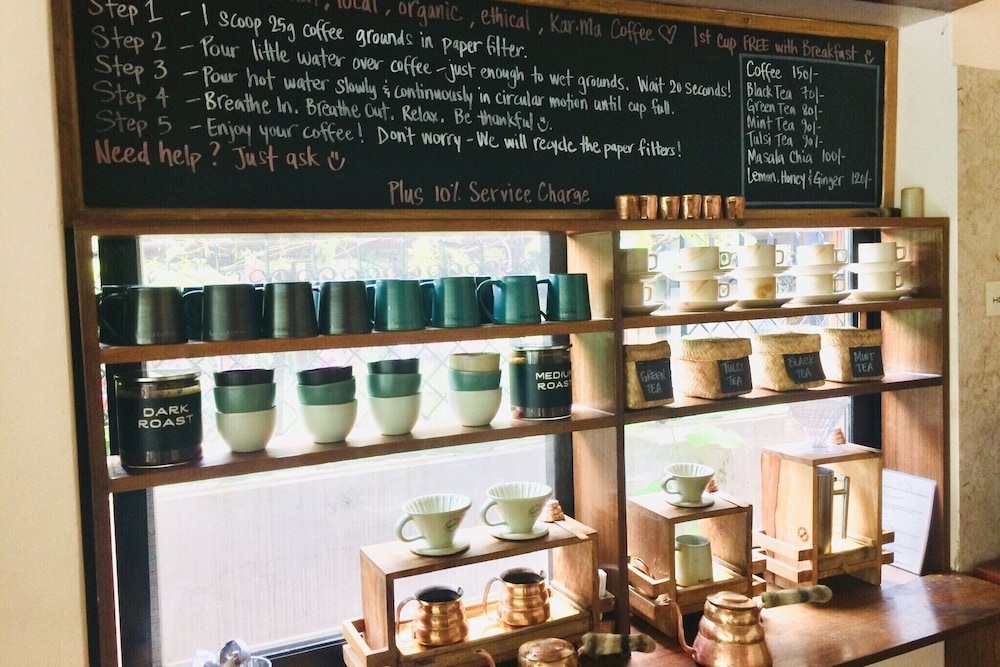 local, organic, ethical, Kar.Ma Coffee ♡
1st cup FREE with Breakfast
Step 1 - 1 scoop 25g coffee grounds in paper filter.
Step 2 - Pour little water over coffee - just enough to wet grounds. Wait 20 seconds!
Step 3 - Pour hot water slowly & continuously in circular motion until cup full.
Step 4 - Breathe In. Breathe Out. Relax. Be thankful
Step 5 - Enjoy your coffee! Don't worry - We will recycle the paper filters!
Need help? Just ask
Plus 10% Service Charge
Coffee 150/-
Black Tea 70/-
Green Tea 80/-
Mint Tea 90/-
Tulsi Tea 90/-
Masala Chia 100/-
Lemon, Honey & Ginger 120/-
DARK
ROAST
MEDIUM
ROAST
GREEN
TEA
TULSI
TEA
BLACK
TEA
MINT
TEA